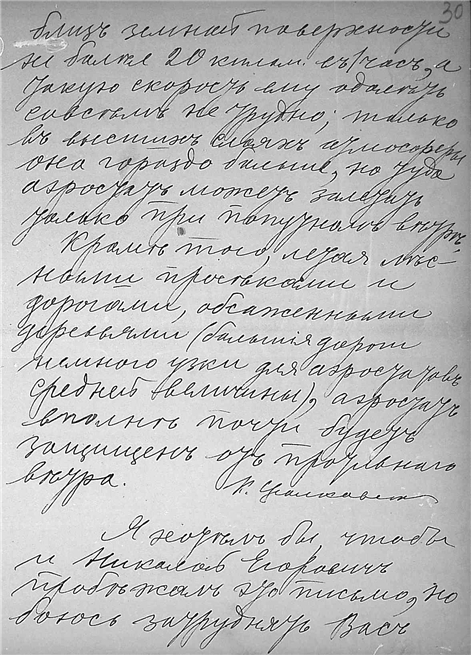 30
близъ земной поверхности
не более 20 килом. въ часъ, а
такую скорость ему одолеть
совсѣмъ не трудно; только
въ высшихъ слояхъ атмосферы
она гораздо больше, но туда
аэростатъ можетъ залетать
только при попутномъ вѣтрѣ.
Кромѣ того, летая лѣс-
ными просѣками и
дорогами, обсаженными
деревьями (большія дороги
немного узки для аэростатовъ
средней величины), аэростатъ
вполнѣ почти будетъ
защищенъ отъ противнаго
вѣтра.
К. Циолковскій
Я хотѣлъ бы чтобы
и Николай Егоровичъ
пробѣжалъ это письмо, но
боюсь затруднять Васъ